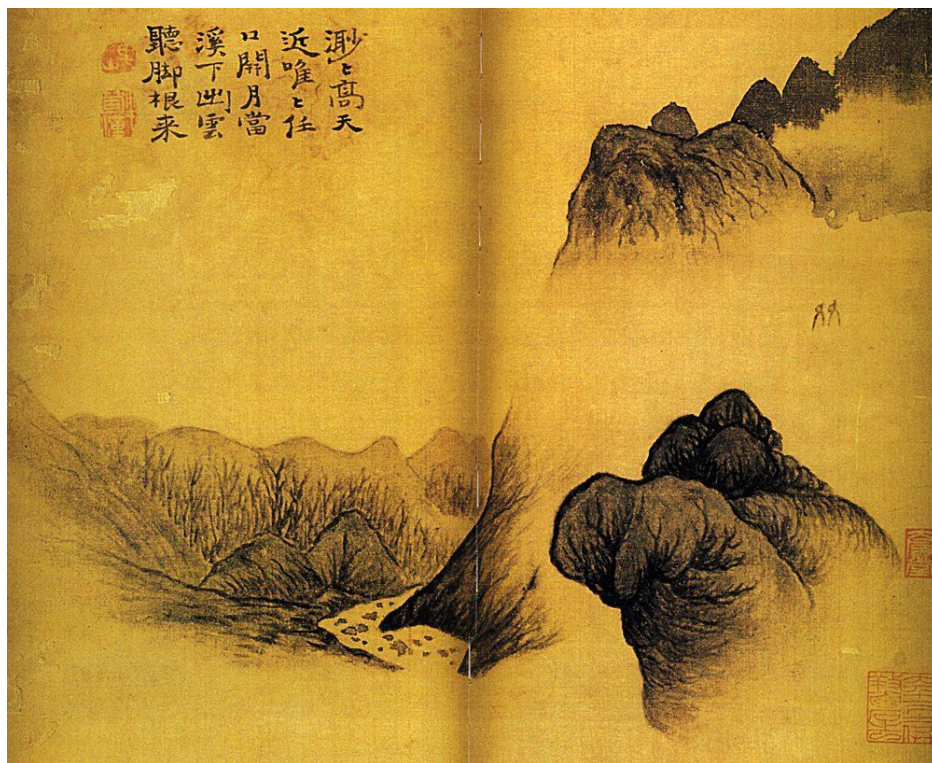 渺〻高天
近唯〻任
口開月當
溪下出雲
聽脚根来